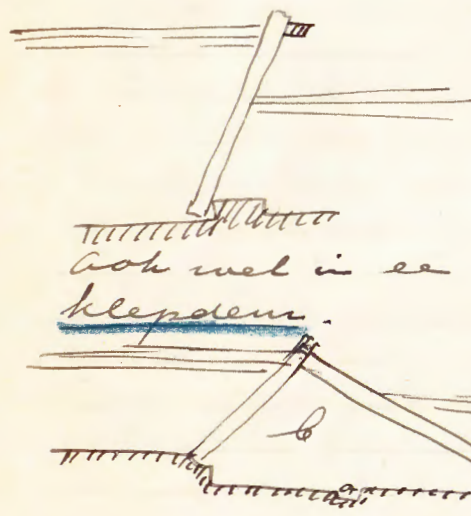 ook wel in ee
klepdeur.
b